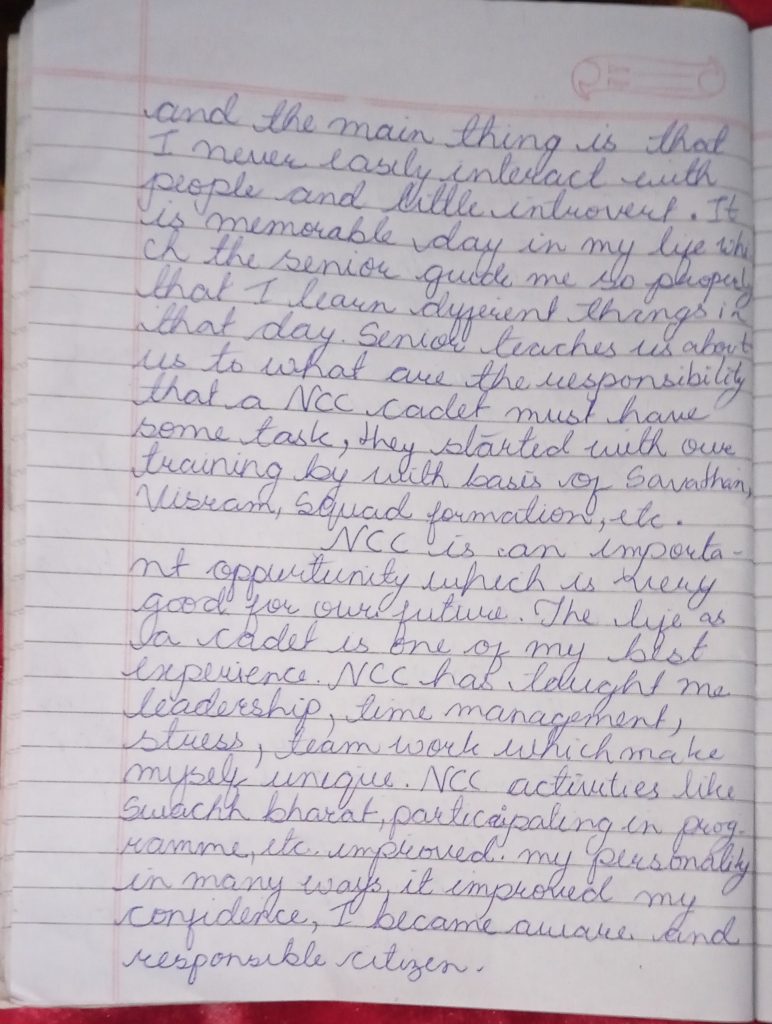 and the main thing is that
I never easily interact with
people and little introvert. It
is memorable day in my life whi
ch the senior guide me so properly
that I learn different things in
that day. Senior teaches us about
us to what are the responsibility
that a NCC cadet must have
some task, they started with our
training by with basis of Savdhan,
Visram, Squad formation, etc.
NCC is an importa-
nt oppurtunity which is very
good for our future. The life as
a cadet is one of my best
experience. NCC has taught me
leadership, time management,
stress, team work which make
myself unique. NCC activities like
Swachh bharat, participating in prog-
ramme, etc. improved my personality
in many ways, it improved my
confidence, I became aware and
responsible citizen.